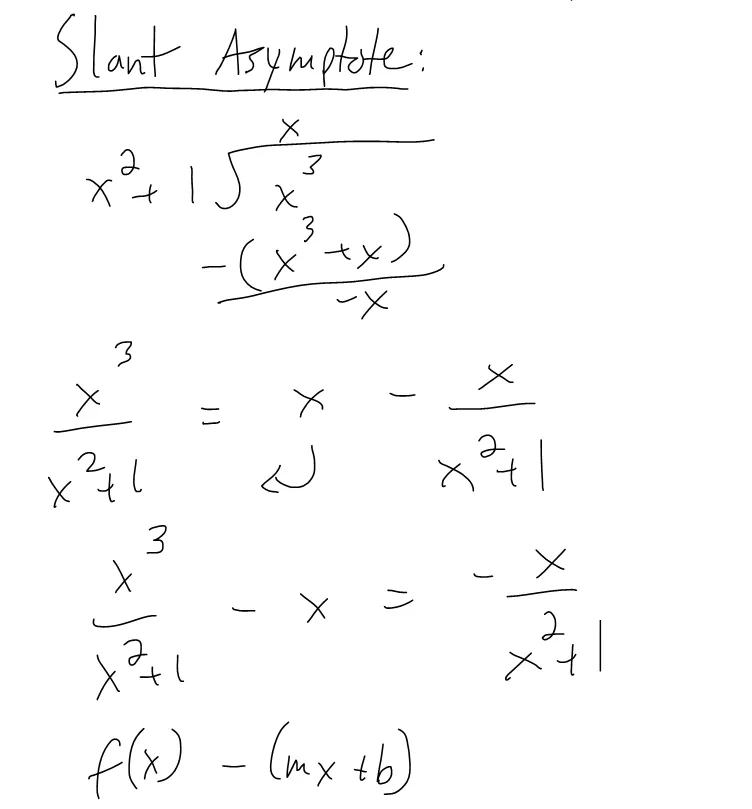 Slant Asymptote:
x
x²+1 √ x³
-(x³+x)
-x
x³/(x²+1) = x - x/(x²+1)
x³/(x²+1) - x = -x/(x²+1)
f(x) - (mx+b)